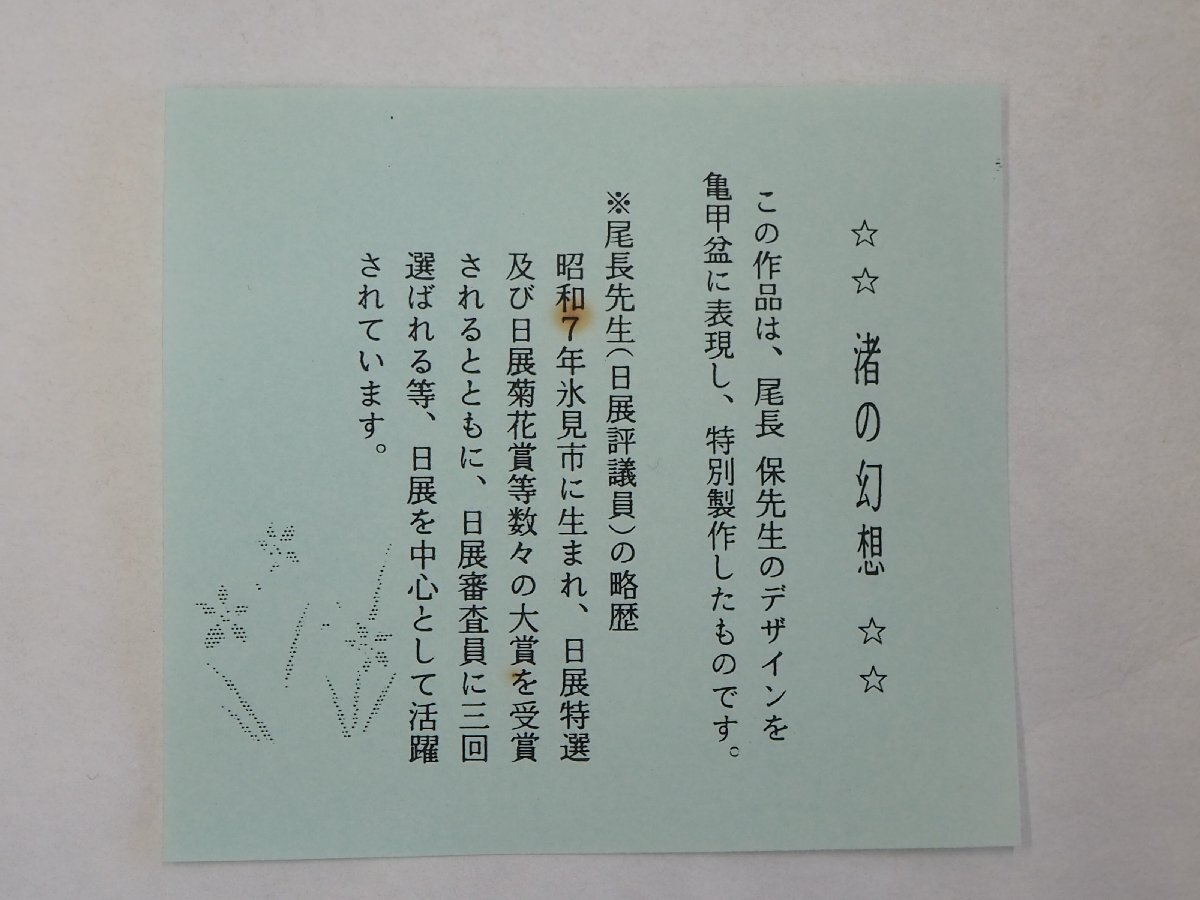 ☆☆ 渚の幻想 ☆☆
この作品は、尾長 保先生のデザインを
亀甲盆に表現し、特別製作したものです。
※尾長先生(日展評議員)の略歴
昭和7年氷見市に生まれ、日展特選
及び日展菊花賞等数々の大賞を受賞
されるとともに、日展審査員に三回
選ばれる等、日展を中心として活躍
されています。